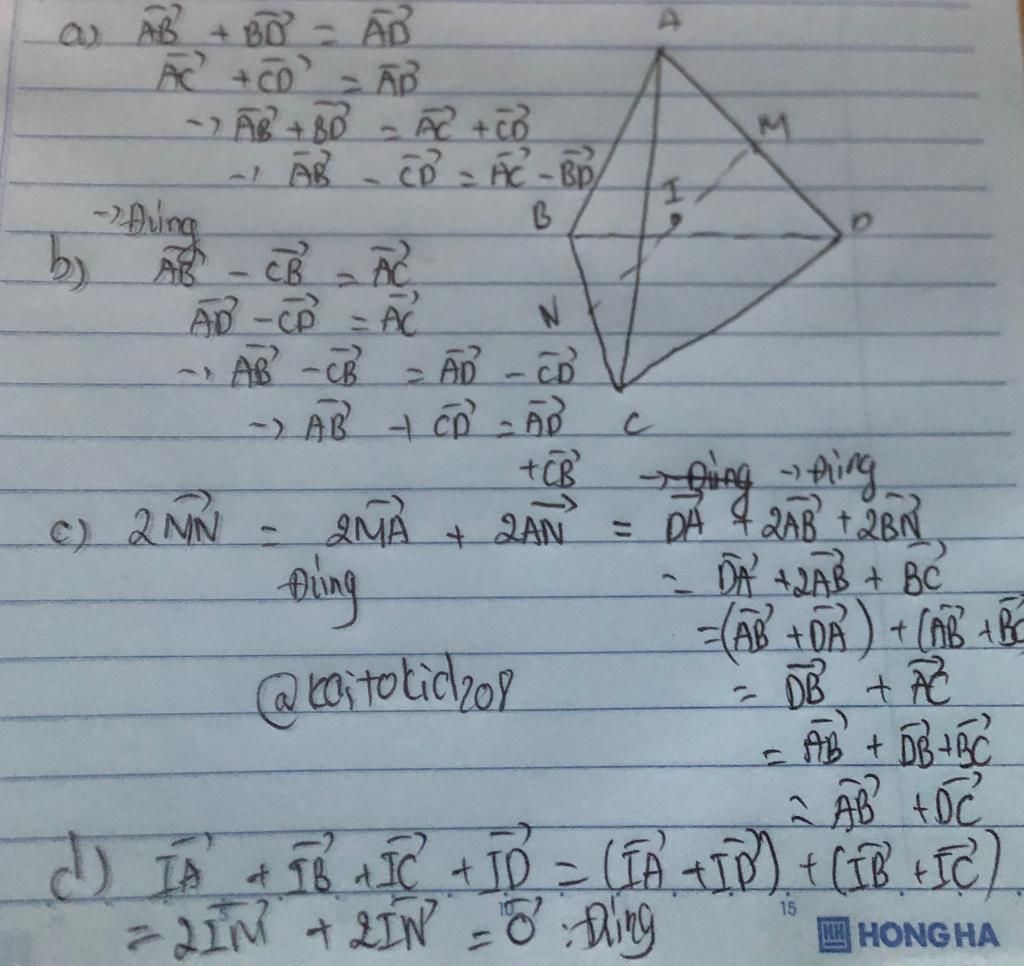 a) AB⃗ + BD⃗ = AD⃗
AC⃗ + CD⃗ = AD⃗
→ AB⃗ + BD⃗ = AC⃗ + CD⃗
→ AB⃗ - CD⃗ = AC⃗ - BD⃗
→ Đúng
A
M
I
B
D
N
C
b) AB⃗ - CB⃗ = AC⃗
AD⃗ - CD⃗ = AC⃗
→ AB⃗ - CB⃗ = AD⃗ - CD⃗
→ AB⃗ + CD⃗ = AD⃗
+ CB⃗ → Đúng → Đúng
c) 2MN⃗ = 2MA⃗ + 2AN⃗ = DA⃗ + 2AB⃗ + 2BN⃗
Đúng = DA⃗ + 2AB⃗ + BC⃗
= (AB⃗ + DA⃗) + (AB⃗ + BC⃗
@kaitokid209 = DB⃗ + AC⃗
= AB⃗ + DB⃗ + BC⃗
= AB⃗ + DC⃗
d) IA⃗ + IB⃗ + IC⃗ + ID⃗ = (IA⃗ + ID⃗) + (IB⃗ + IC⃗)
= 2IM⃗ + 2IN⃗ = 0⃗ : Đúng
10 15
HH HONG HA